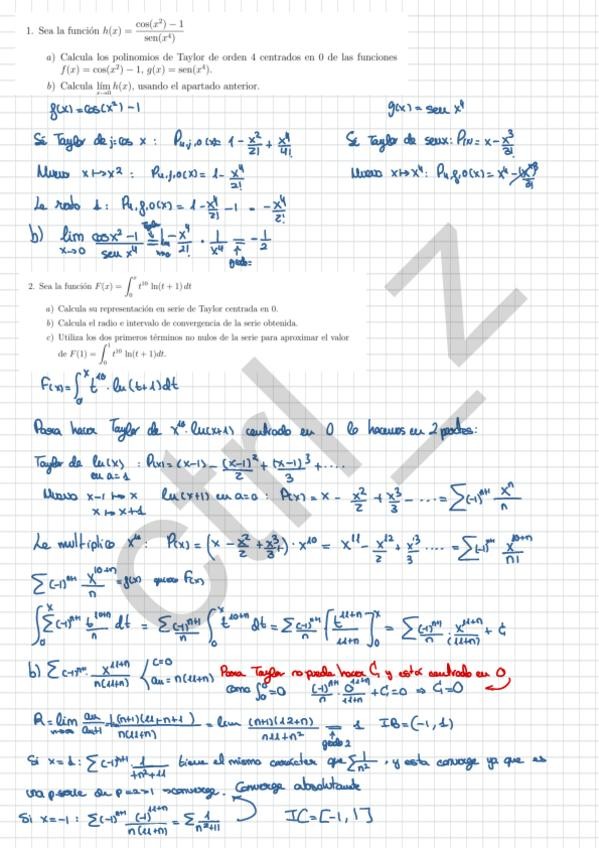 1. Sea la función h(x) = (cos(x²) − 1)/(sen(x⁴))
a) Calcula los polinomios de Taylor de orden 4 centrados en 0 de las funciones
f(x) = cos(x²) − 1, g(x) = sen(x⁴).
b) Calcula lim x→0 h(x), usando el apartado anterior.
f(x) = cos(x²) − 1
Si Taylor de j = cos x : P4,j,0(x) = 1 − x²/2! + x⁴/4!
Muevo x ↦ x² : P4,j,0(x) = 1 − x⁴/2!
Le resto 1 : P4,f,0(x) = 1 − x⁴/2! − 1 = −x⁴/2!
g(x) = sen x⁴
Si Taylor de senx : P(x) = x − x³/3!
Muevo x ↦ x⁴ :
b) lim x→0 (cos x² − 1)/(sen x⁴) = lim −x⁴/2! · 1/x⁴ = −1/2
2. Sea la función F(x) = ∫₀ˣ t¹⁰ ln(t + 1) dt
a) Calcula su representación en serie de Taylor centrada en 0.
b) Calcula el radio e intervalo de convergencia de la serie obtenida.
c) Utiliza los dos primeros términos no nulos de la serie para aproximar el valor
de F(1) = ∫₀¹ t¹⁰ ln(t + 1)dt.
F(x) = ∫₀ˣ t¹⁰ · ln(t+1) dt
Para hacer Taylor de x¹⁰ · ln(x+1) centrado en 0 lo hacemos en 2 partes:
Taylor de ln(x) : P(x) = (x−1) − (x−1)²/2 + (x−1)³/3 + ....
en a=1
Muevo x−1 ↦ x ln(x+1) en a=0 : P(x) = x − x²/2 + x³/3 − .... = Σ(−1)ⁿ⁺¹ xⁿ/n
x ↦ x+1
Le multiplico x¹⁰ : P(x) = (x − x²/2 + x³/3) · x¹⁰ = x¹¹ − x¹²/2 + x¹³/3 .... = Σ(−1)ⁿ⁺¹ x¹⁰⁺ⁿ/n
Σ(−1)ⁿ⁺¹ x¹⁰⁺ⁿ/n = f(x) quiero F(x)
∫₀ˣ Σ(−1)ⁿ⁺¹ t¹⁰⁺ⁿ/n dt = Σ (−1)ⁿ⁺¹/n ∫₀ˣ t¹⁰⁺ⁿ dt = Σ (−1)ⁿ⁺¹/n [t¹¹⁺ⁿ/(11+n)]₀ˣ = Σ (−1)ⁿ⁺¹/n · x¹¹⁺ⁿ/(11+n) + C
b) Σ(−1)ⁿ⁺¹ x¹¹⁺ⁿ/(n(11+n)) { C=0
an = n(11+n)
Para Taylor no puedo haber C y estar centrado en 0
como ∫₀⁰ = 0 (−1)ⁿ⁺¹/n · 0¹¹⁺ⁿ/(11+n) + C = 0 ⇒ C=0
R = lim n→∞ an/an+1 = (n+1)(11+n+1)/(n(11+n)) = lim (n+1)(12+n)/(n11+n²) = 1 IB = (−1, 1)
grado 2
Si x = 1 : Σ(−1)ⁿ⁺¹ 1/(n²+11) tiene el mismo carácter que Σ1/n² , y esta converge ya que es
una p serie de p=2>1 ⇒ converge. Converge absolutamente
Si x = −1 : Σ(−1)ⁿ⁺¹ (−1)¹¹⁺ⁿ/(n(11+n)) = Σ 1/(n²+11) IC = [−1, 1]
ctrl_z